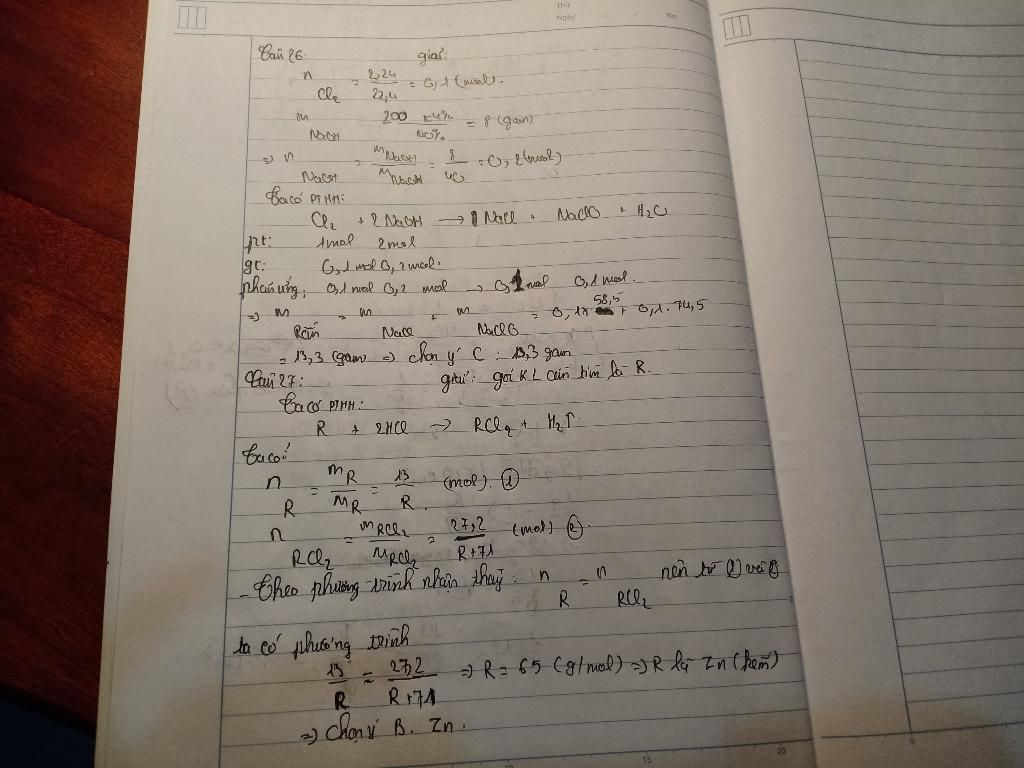 Thứ
Ngày . . No.
Câu 26: giải:
n Cl₂ = 2,24/22,4 = 0,1 (mol).
m NaOH 200 x4%/100% = 8 (gam)
=> n NaOH = mNaOH/MNaOH = 8/40 = 0,2 (mol)
Ta có PTHH:
Cl₂ + 2 NaOH → 1 NaCl + NaClO + H₂O
pt: 1mol 2mol
gt: 0,1 mol 0,2 mol.
phản ứng: 0,1 mol 0,2 mol → 0,1 mol 0,1 mol.
=> m Rắn = m NaCl + m NaClO = 0,1x 58,5 + 0,1.74,5
= 13,3 (gam => chọn ý C : 13,3 gam
Câu 27: giải: gọi KL cần tìm là R.
Ta có PTHH:
R + 2HCl → RCl₂ + H₂↑.
Ta có:
n R = mR/MR = 13/R (mol). ①
n RCl₂ = mRCl₂/MRCl₂ = 27,2/R+71 (mol) ②.
- Theo phương trình nhận thấy: n R = n RCl₂ nên từ ① và ②
ta có phương trình
13/R = 27,2/R+71 => R = 65 (g/mol) => R là Zn (kẽm)
=> Chọn ý B. Zn.
15
20